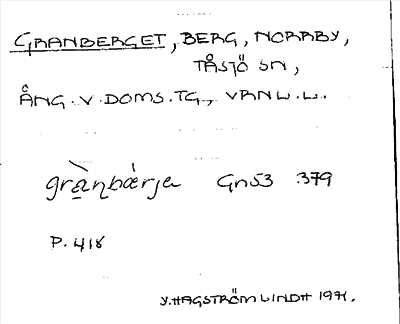 GRANBERGET, BERG, NORRBY,
TÅSJÖ SN,
ÅNG. V. DOMS. TG., VRNL.L.
grànbærja Gn53 379
P. 418
Y. HAGSTRÖM LINDH 1971.